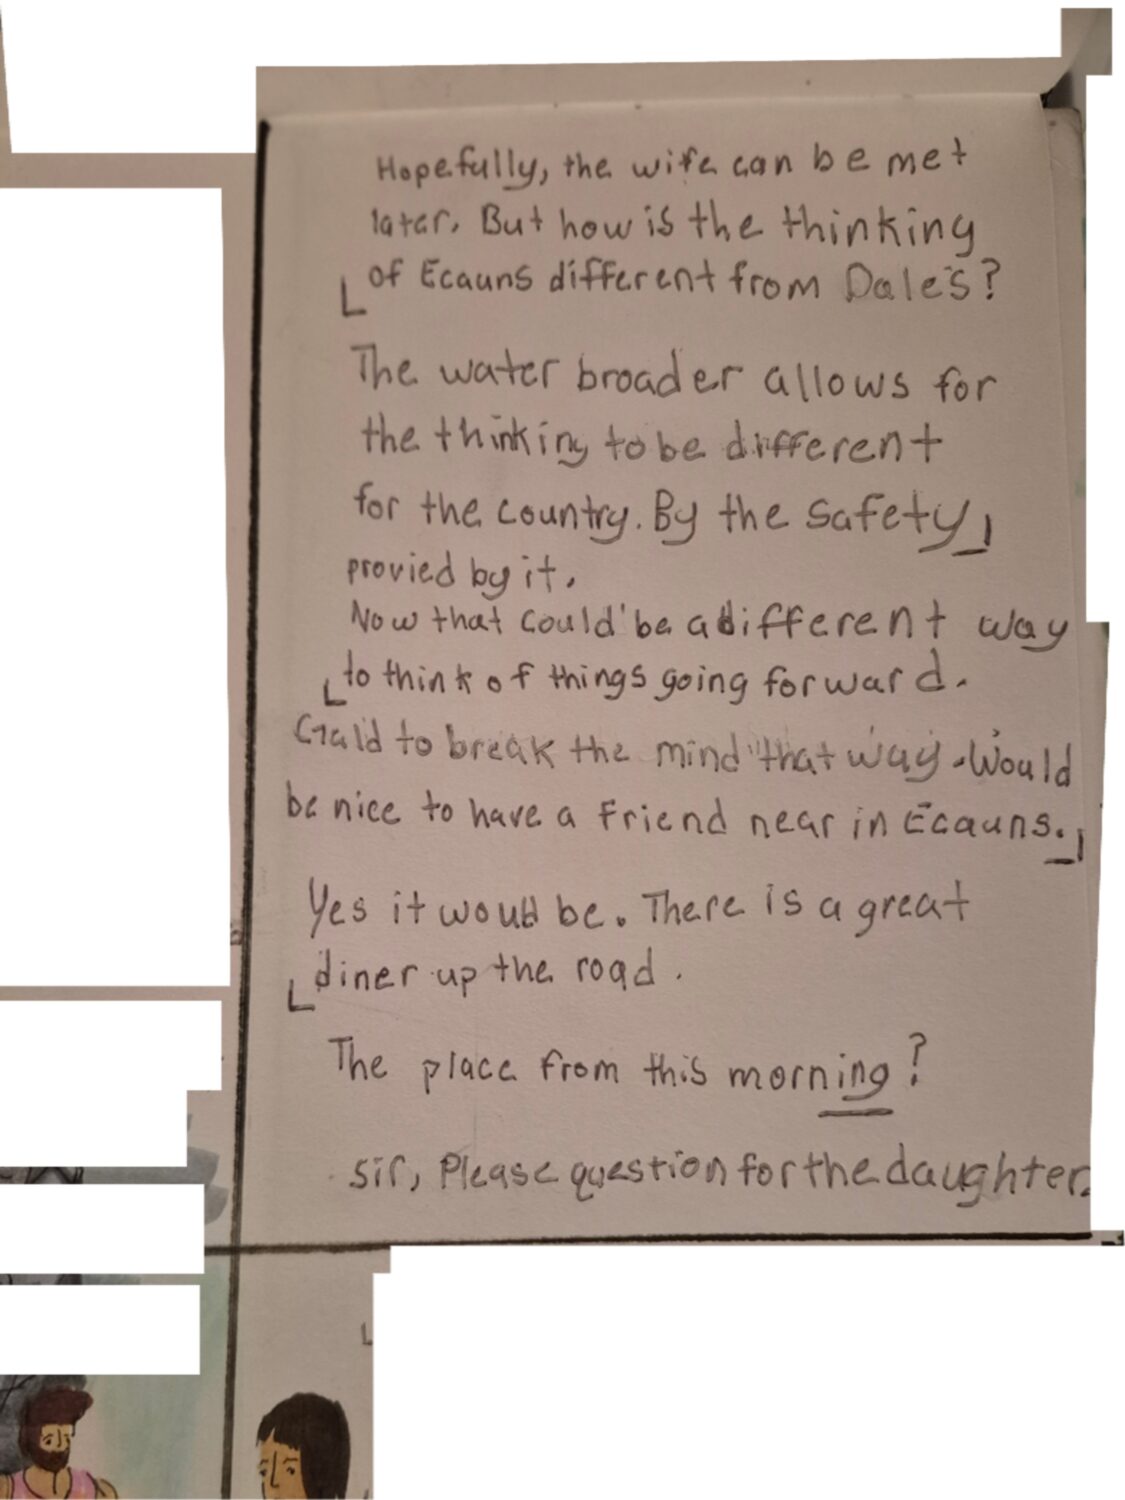 Hopefully, the wife can be met
later. But how is the thinking
of Ecauns different from Dale's?
The water broader allows for
the thinking to be different
for the country. By the safety
provied by it.
Now that could be a different way
to think of things going forward.
Gald to break the mind that way. Would
be nice to have a friend near in Ecauns.
Yes it would be. There is a great
diner up the road.
The place from this morning?
Sir, Please question for the daughter.